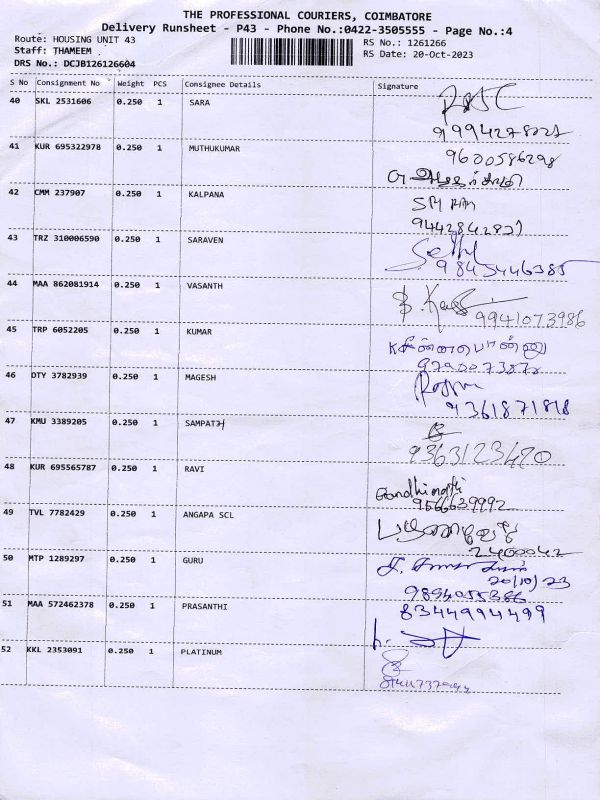 THE PROFESSIONAL COURIERS, COIMBATORE
Delivery Runsheet - P43 - Phone No.:0422-3505555 - Page No.:4
Route: HOUSING UNIT 43
RS No.: 1261266
Staff: THAMEEM .
RS Date: 20-Oct-2023
DRS No.: DCJB126126604
S No Consignment No Weight PCS Consignee Details Signature
40 SKL 2531606 0.250 1 SARA
41 KUR 695322978 0.250 1 MUTHUKUMAR
9600586298
42 CMM 237907 0.250 1 KALPANA
43 TRZ 310006590 0.250 1 SARAVEN
9843446385
44 MAA 862081914 0.250 1 VASANTH
9941073986
45 TRP 6052205 0.250 1 KUMAR
46 DTY 3782939 0.250 1 MAGESH
9361871818
47 KMU 3389205 0.250 1 SAMPATH
9363123420
48 KUR 695565787 0.250 1 RAVI
Gandhimathi
9566639992
49 TVL 7782429 0.250 1 ANGAPA SCL
2400042
50 MTP 1289297 0.250 1 GURU
20/10/23
9894055386
51 MAA 572462378 0.250 1 PRASANTHI
8344994499
52 KKL 2353091 0.250 1 PLATINUM